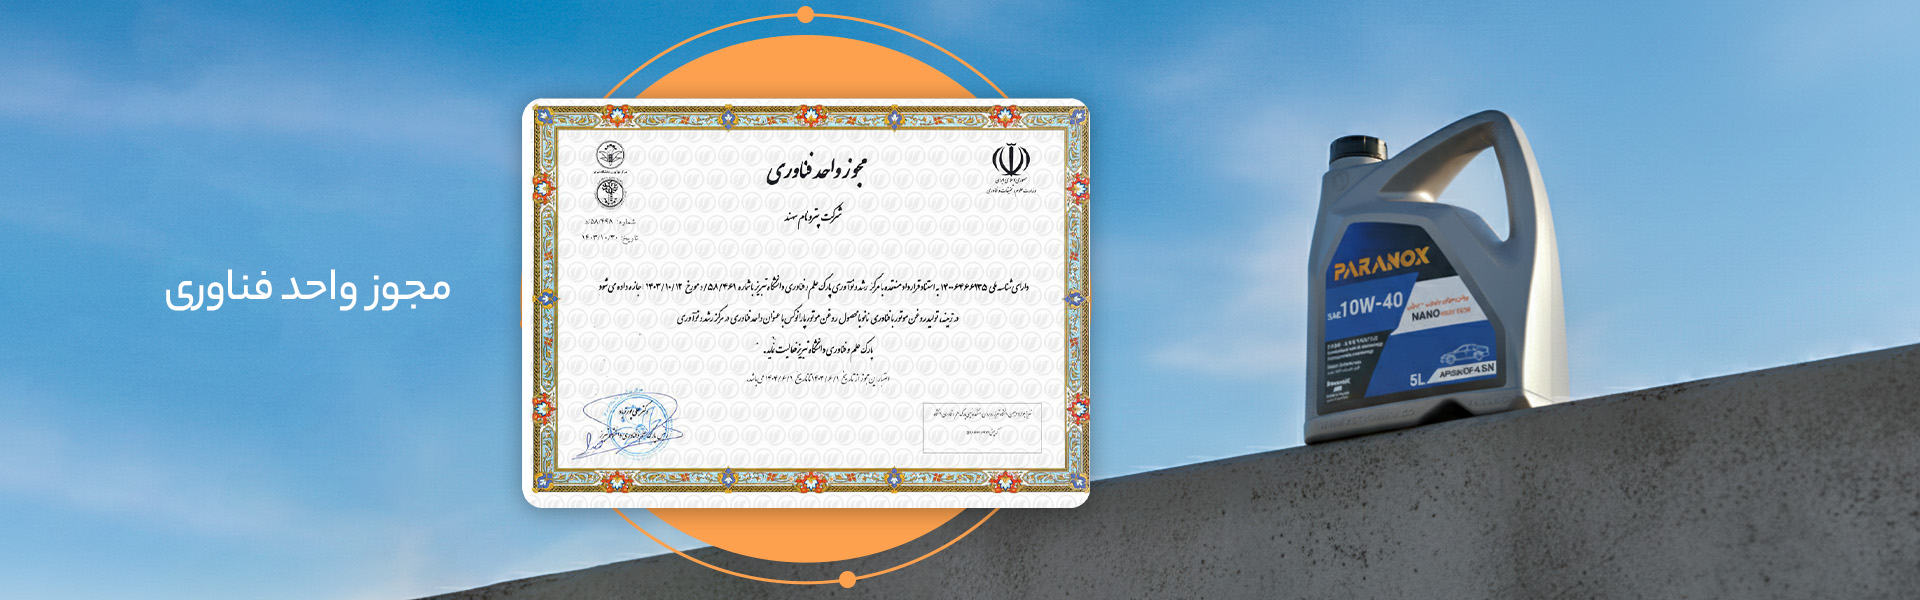 مجوز واحد فناوری
مجوز واحد فناوری
شرکت پترو نام سهند
شماره: ۵۸/۴۹۸/د
تاریخ: ۱۴۰۳/۱۰/۳۰
دارای شناسه ملی ۱۴۰۰۶۴۶۶۱۳۵ به استناد قرارداد منعقده با مرکز رشد و نوآوری پارک علم و فناوری دانشگاه تبریز با شماره ۵۸/۴۶۱/د مورخ ۱۴۰۳/۱۰/۱۲ اجازه داده می شود
در زمینه تولید روغن موتور با فناوری نانو با محصول روغن موتور پارانوکس با عنوان واحد فناوری در مرکز رشد و نوآوری
پارک علم و فناوری دانشگاه تبریز فعالیت نماید.
اعتبار این مجوز از تاریخ ۱۴۰۳/۶/۱ تا تاریخ ۱۴۰۴/۶/۱ می باشد.
PARANOX
SAE 10W-40
NANO
5L
API SN/CF-4,SN